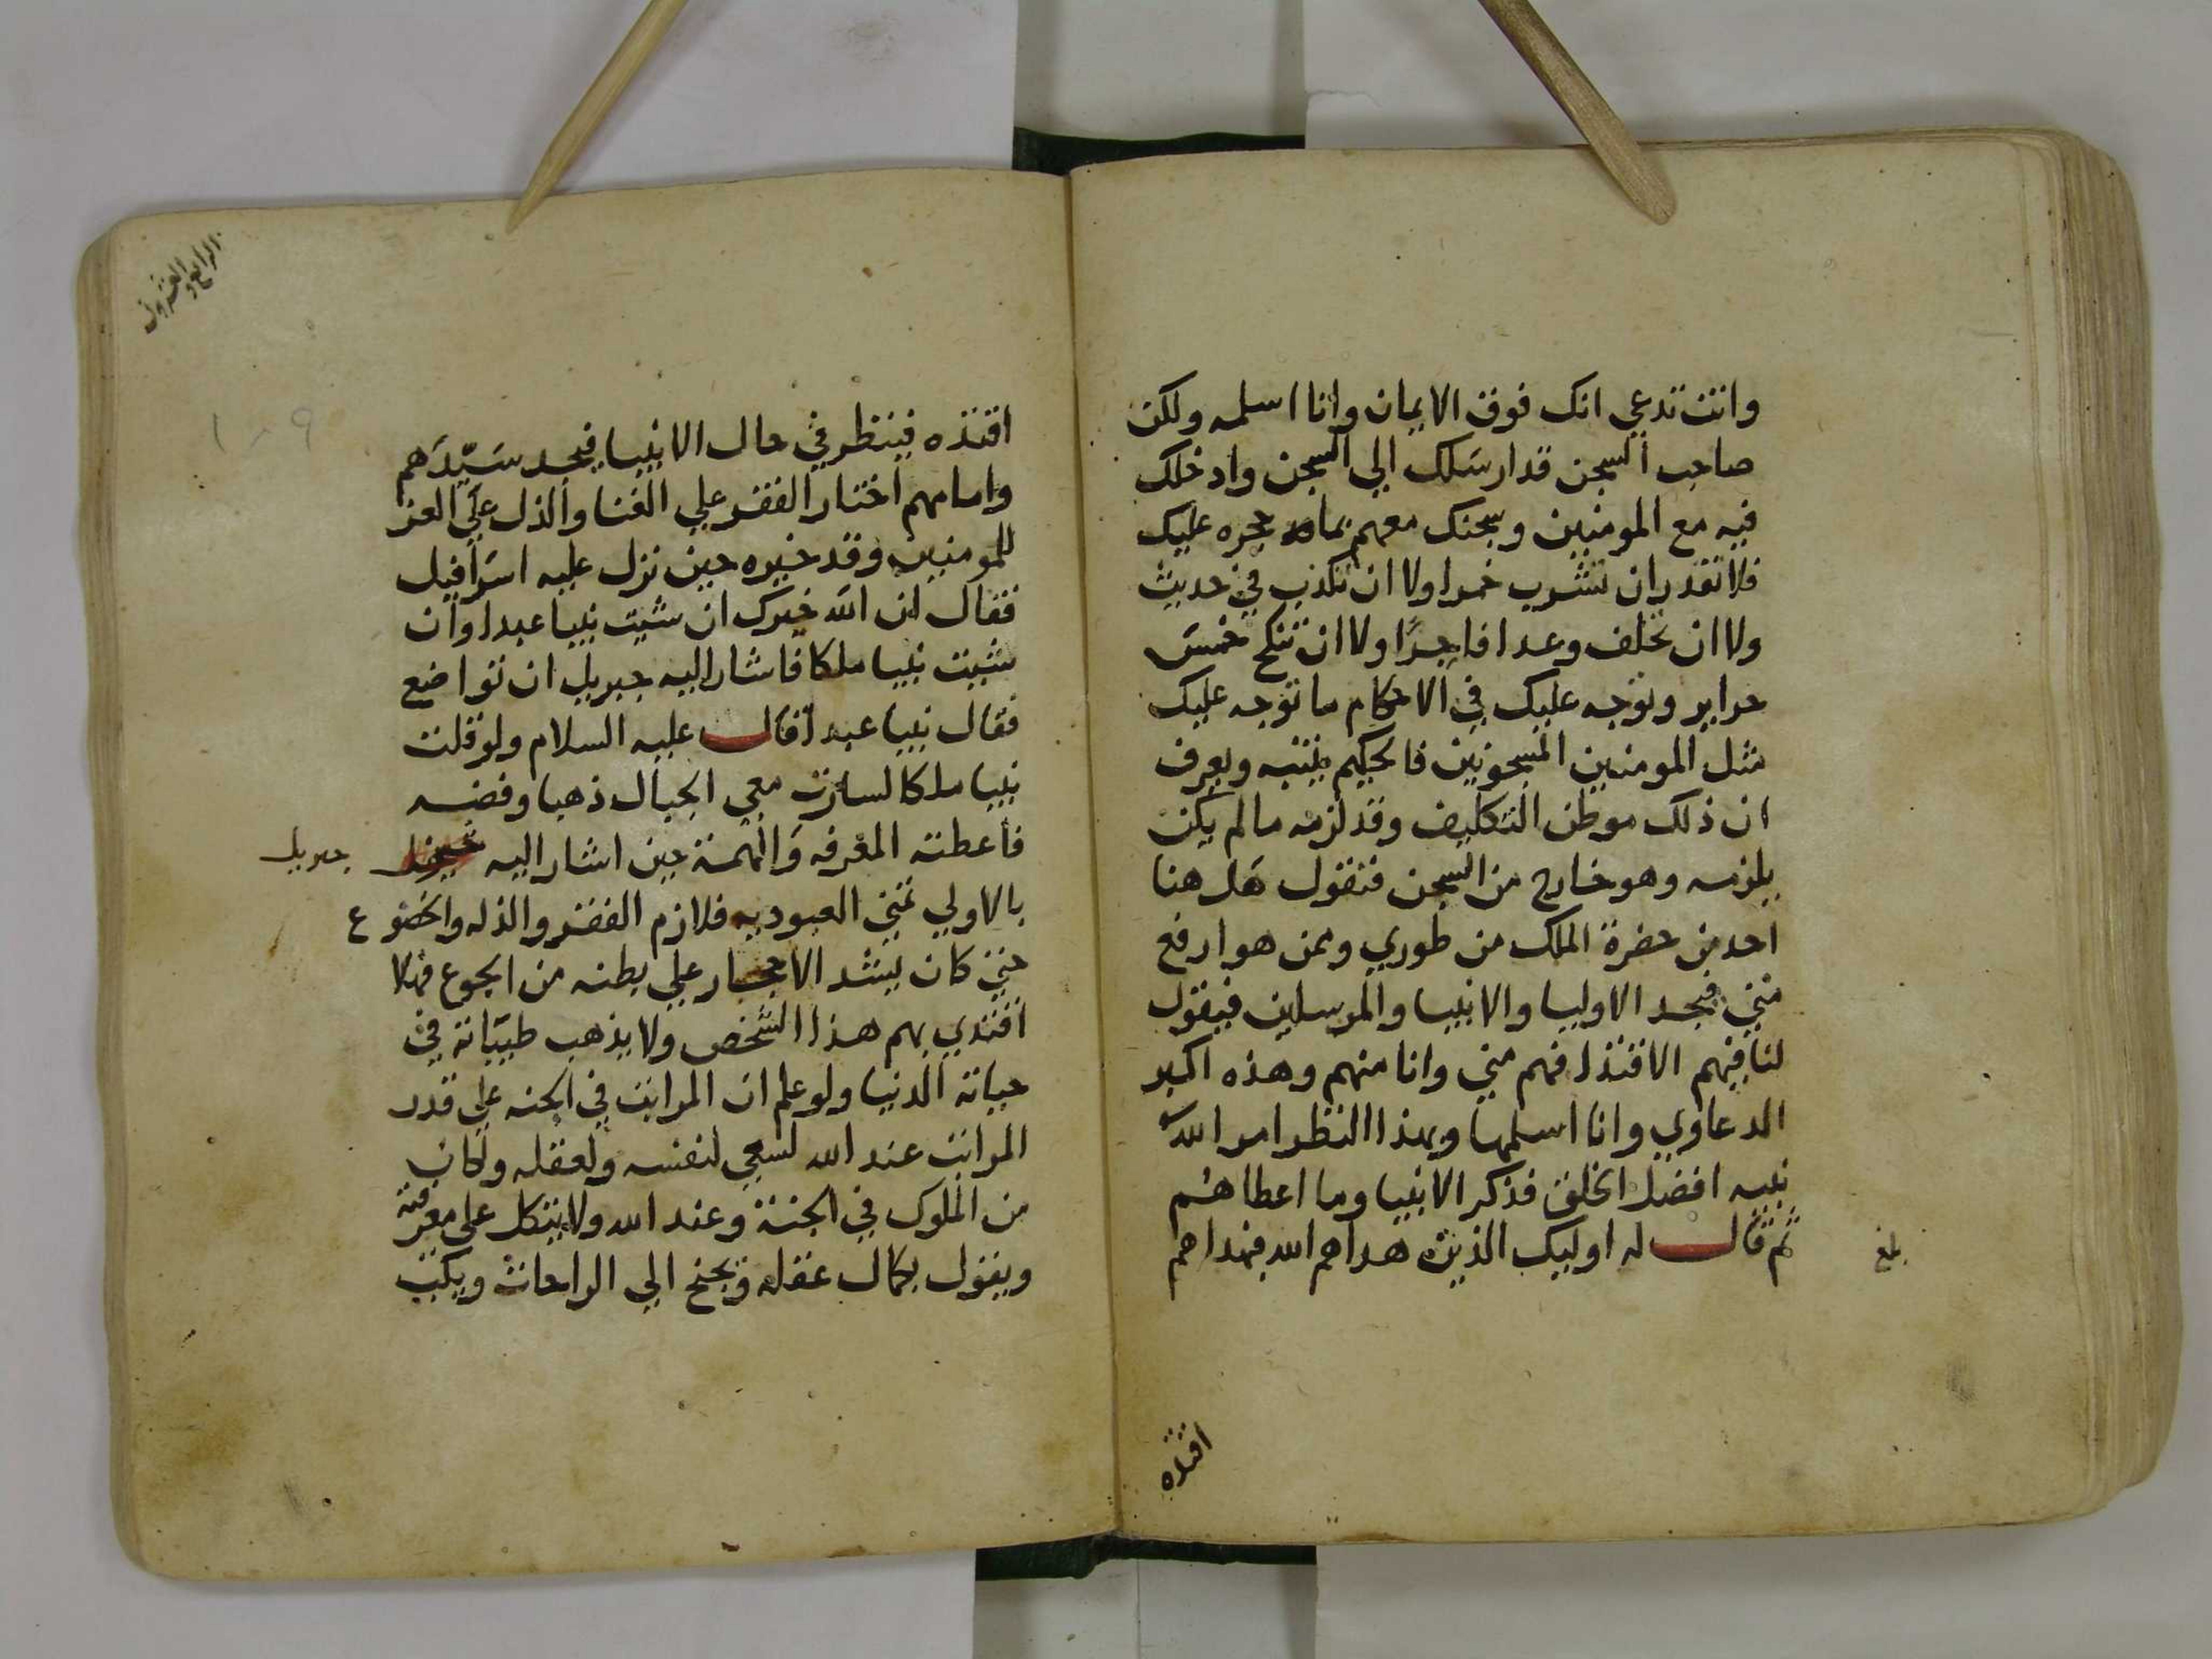 وانت تدعي انك فوق الايمان وانا اسلمه ولكن
صاحب السجن قد ارسلك الي السجن وادخلك
فيه مع المومنين وسجنك معهم بما حجره عليك
فلا تقدر ان تشرب خمرا ولا ان تكذب في حديث
ولا ان تخلف وعدا فاجرًا ولا ان تنكح خمس
حراير وتوجه عليك في الاحكام ما توجه عليك
مثل المومنين المسجونين فالحكيم ينتبه ويعرف
ان ذلك موطن التكليف وقد لزمه ما لم يكن
يلزمه وهو خارج من السجن فتقول هل هنا
احد من حضرة الملك من طوري وممن هو ارفع
مني فيجد الاوليا والانبيا والمرسلين فيقول
لنا فيهم الاقتدا فهم مني وانا منهم وهذه اكبر
الدعاوي وانا اسلمها وبهذا النظر امر الله
نبيه افضل الخلق فذكر الانبيا وما اعطاهم
ثم قال له اوليك الذين هداهم الله فبهداهم
بلغ
اقتده
الرابع والعشرون
١٠٩
اقتده فينظر في حال الانبيا فيجد سيّدهم
وامامهم اختار الفقر علي الغنا والذل علي العز
للمومنين وقد خيره حين نزل عليه اسرافيل
فقال ان الله خيرك ان شيت نبيا عبدا وان
شيت نبيا ملكا فاشار اليه جبريل ان تواضع
فقال نبيا عبدا قال عليه السلام ولو قلت
نبيا ملكا لسارت معي الجبال ذهبا وفضه
فاعطته المعرفه والهمة حين اشار اليه
جبريل
بالاولي تمني العبوديه فلازم الفقر والذله والخضوع
حتي كان يشد الاحجار علي بطنه من الجوع فهلا
اقتدي بهم هذا الشخص ولا يذهب طيباته في
حياته الدنيا ولو علم ان المراتب في الجنه علي قدر
المراتب عند الله لسعي لنفسه ولعقله ولكان
من الملوك في الجنة وعند الله ولا يتكل علي معرفته
ويقول بكمال عقله ويجنح الي الراحات ويكتب